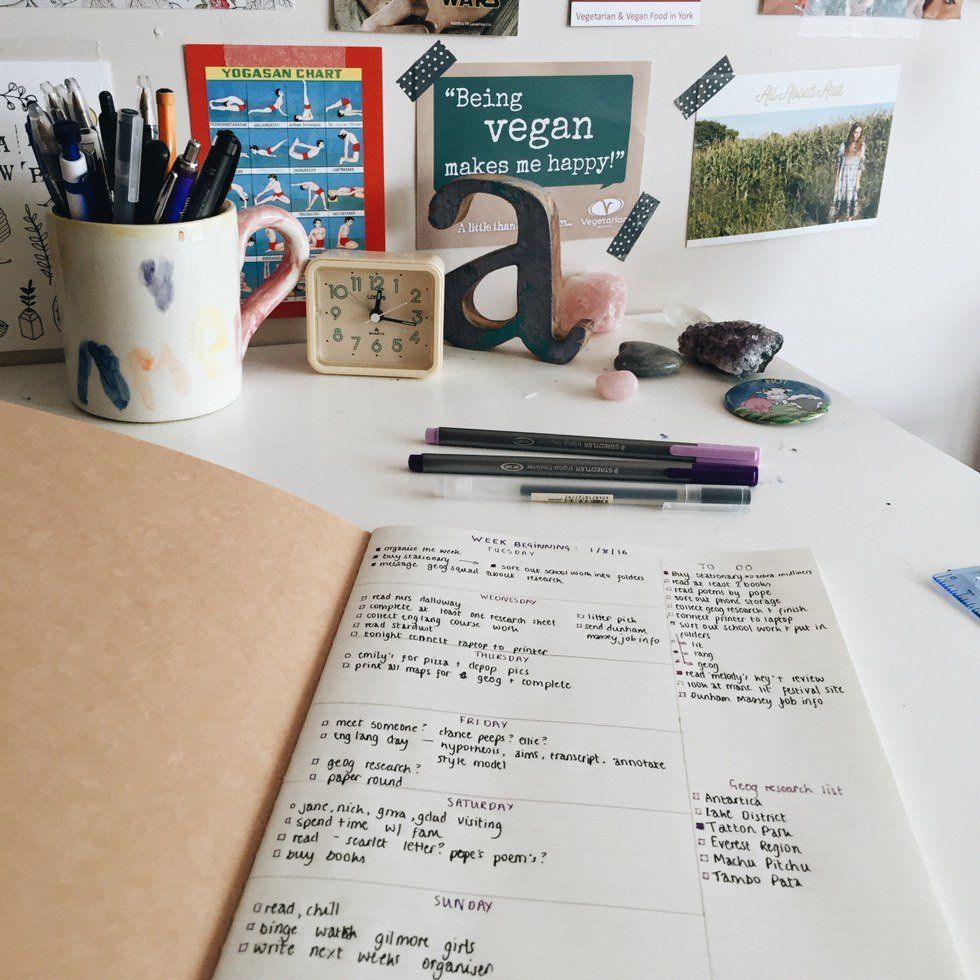 WARS
Vegetarian & Vegan Food in York
YOGASAN CHART
"Being
vegan
makes me happy!"
A little than
Vegetarian
All About Aud
12
1
2
3
4
5
6
7
8
9
10
11
LOTUS
QUARTZ
me
a
NO!
STAEDTLER triplus fineliner
STAEDTLER triplus fineliner
WEEK BEGINNING: 1/8/16
TUESDAY
organise me week
buy stationary
sort out school work into folders
message geog squad about research
WEDNESDAY
read mrs dalloway
complete at least one research sheet
collect eng lang course work
read stardust
tonight connect laptop to printer
litter pick
send dunham
massey job info
THURSDAY
emily's for pizza + depop pics
print all maps for geog + complete
FRIDAY
meet someone? dance peeps? ellie?
eng lang day — hypothesis, aims, transcript, annotate
style model
geog research?
paper round
SATURDAY
jane, nick, gma, gdad visiting
spend time w/ fam
read - scarlet letter? pope's poem's?
buy books
SUNDAY
read, chill
binge watch gilmore girls
write next weeks organiser
TO DO
Buy stationary zebra midliners
read at least 2 books
read poems by pope
sort out phone storage
collect geog research + finish
connect printer to laptop
sort out school work + put in
folders
lit
lang
geog
read 'melody's key' + review
look at manc lit festival site
Dunham Massey job info
Geog research list
Antartica
Lake District
Tatton Park
Everest Region
Machu Pitchu
Tambo Pata